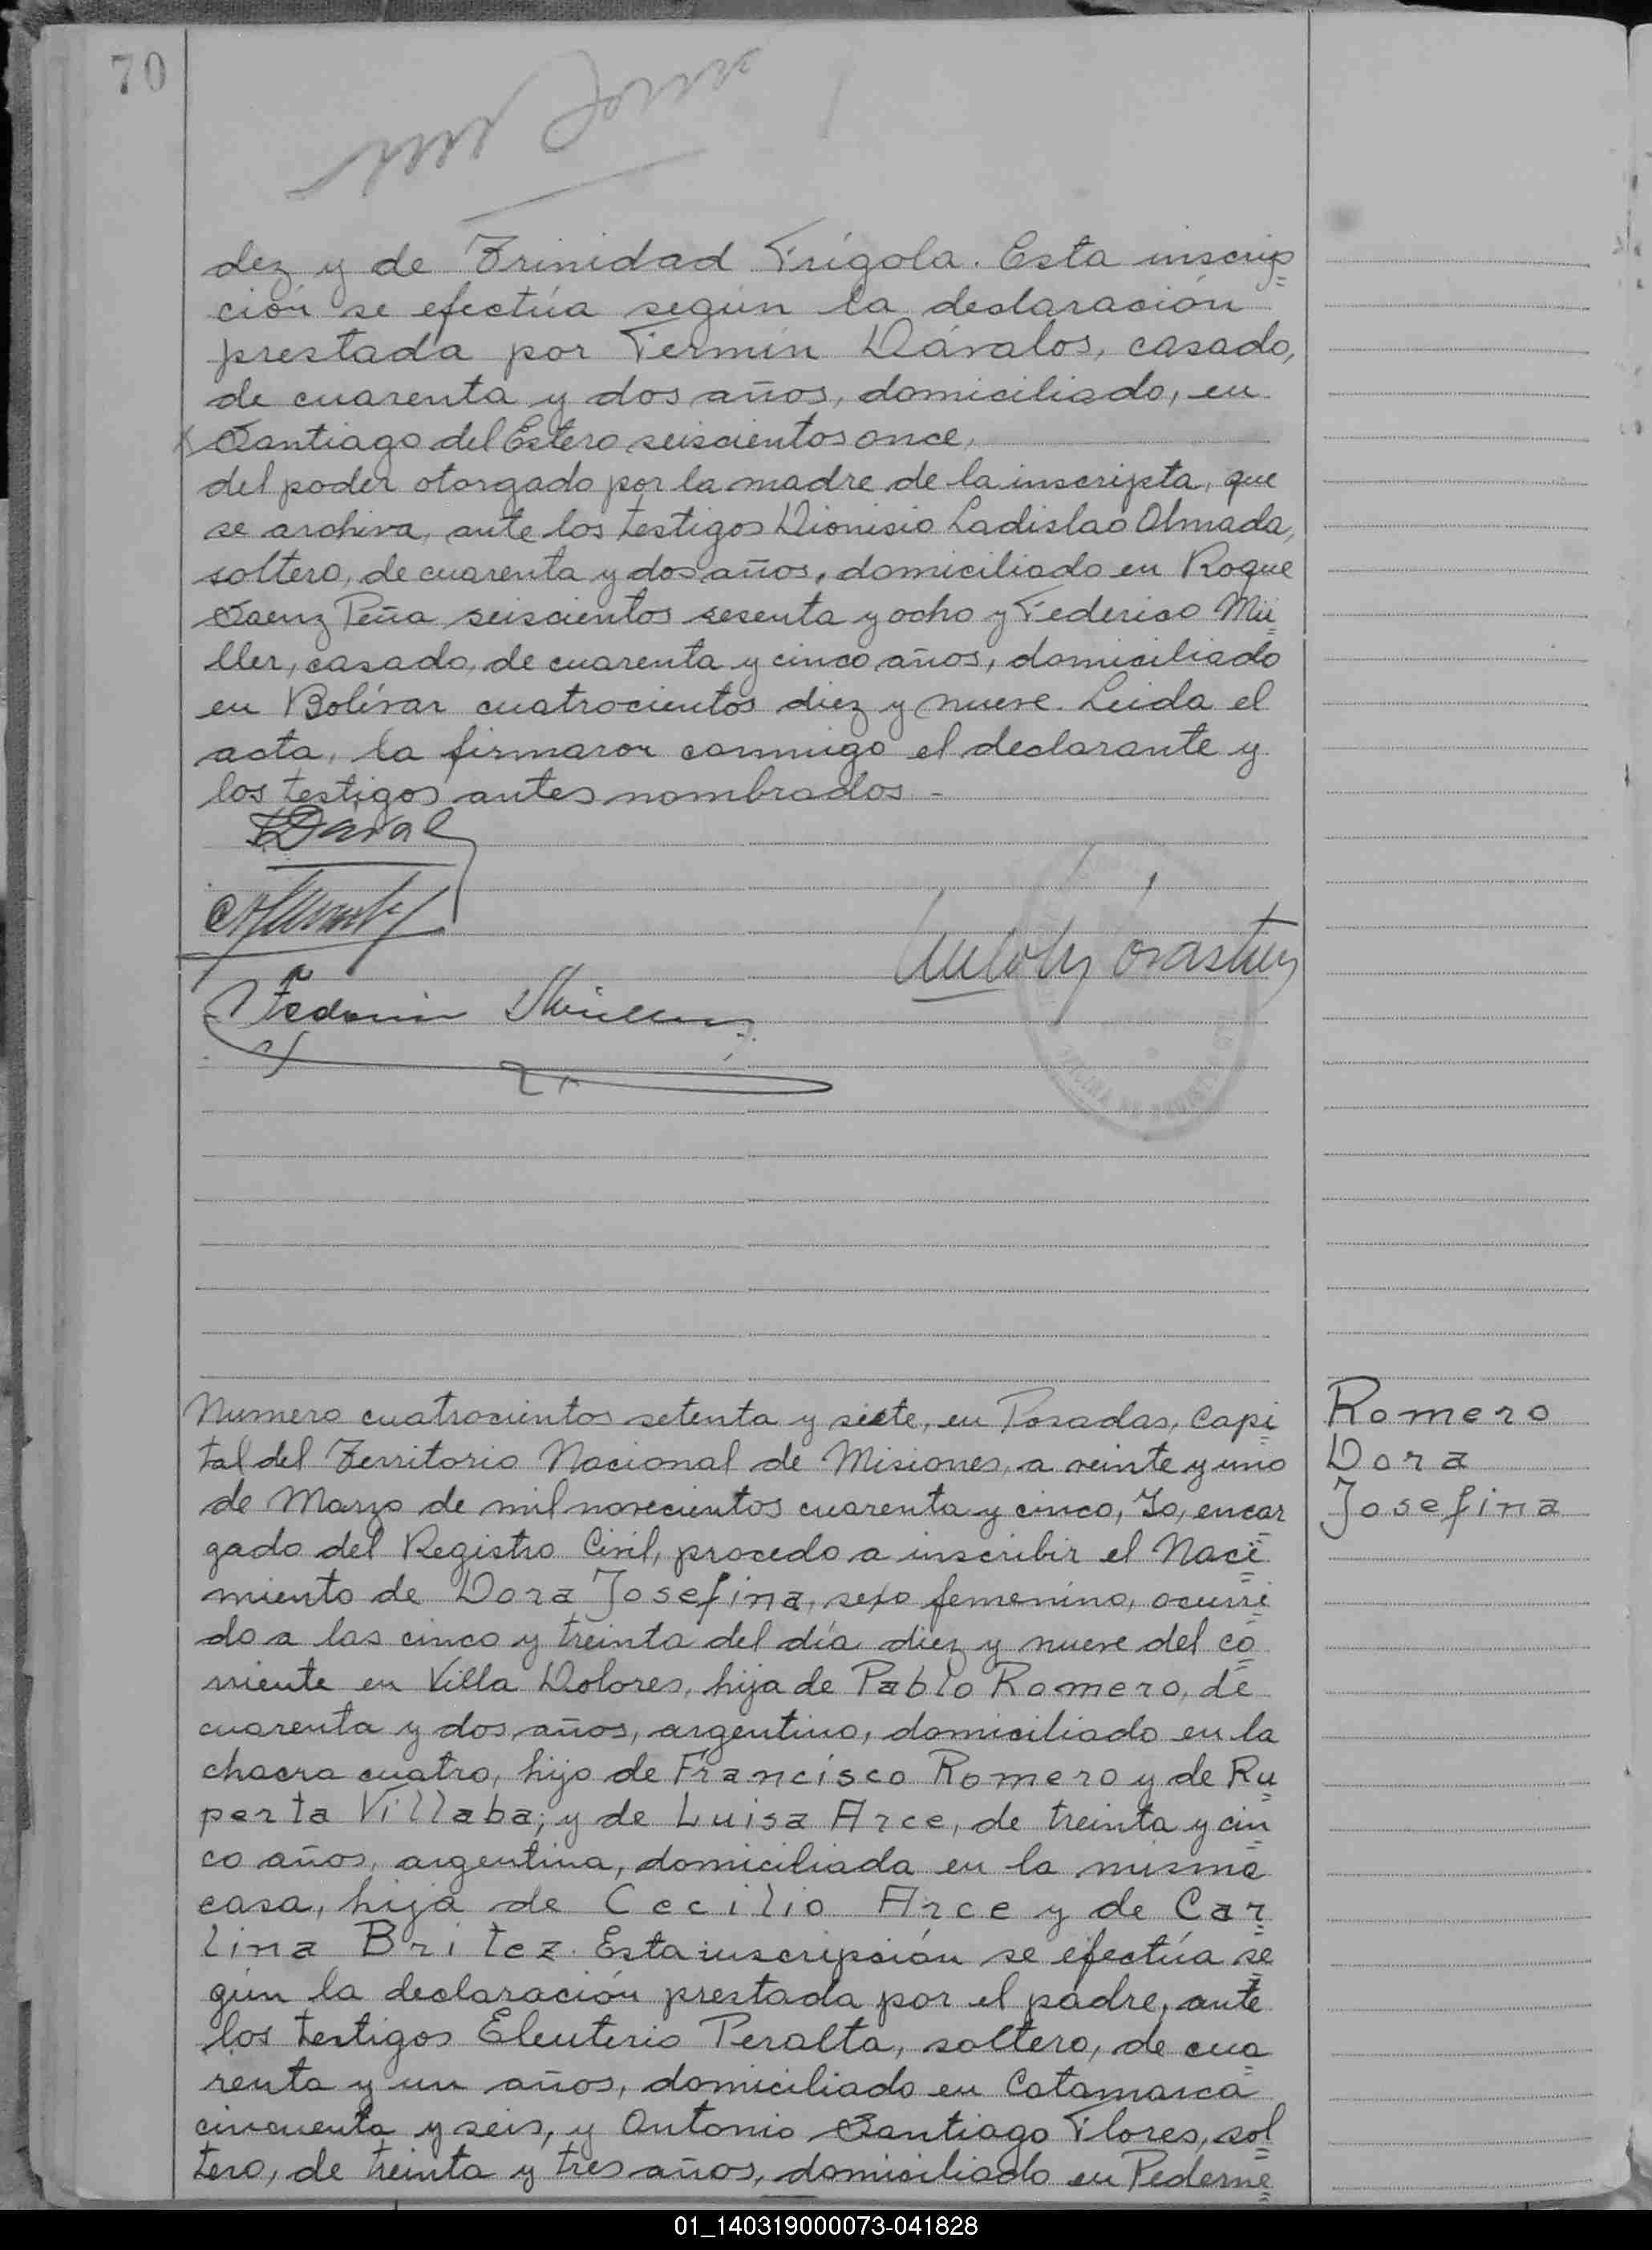 70
dez y de Trinidad Frígola. Esta inscrip=
ción se efectúa según la declaración
prestada por Fermín Dávalos, casado,
de cuarenta y dos años, domiciliado, en
Santiago del Estero seiscientos once,
del poder otorgado por la madre de la inscripta, que
se archiva, ante los testigos Dionisio Ladislao Almada,
soltero, de cuarenta y dos años, domiciliado en Roque
Saenz Peña seiscientos sesenta y ocho y Federico Mü=
ller, casado, de cuarenta y cinco años, domiciliado
en Bolívar cuatrocientos diez y nueve. Leida el
acta, la firmaron conmigo el declarante y
los testigos antes nombrados -
Federico Müller
Numero cuatrocientos setenta y siete, en Posadas, Capi=
tal del Territorio Nacional de Misiones, a veinte y uno
de Marzo de mil novecientos cuarenta y cinco, Yo, encar=
gado del Registro Civil, procedo a inscribir el Naci=
miento de Dora Josefina, sexo femenino, ocurri=
do a las cinco y treinta del día diez y nueve del co=
rriente en Villa Dolores, hija de Pablo Romero, de
cuarenta y dos años, argentino, domiciliado en la
chacra cuatro, hijo de Francisco Romero y de Ru=
perta Villaba; y de Luisa Arce, de treinta y cin=
co años, argentina, domiciliada en la misma
casa, hija de Cecilio Arce y de Car=
lina Britez. Esta inscripción se efectúa se=
gún la declaración prestada por el padre, ante
los testigos Eleuterio Peralta, soltero, de cua=
renta y un años, domiciliado en Catamarca
cincuenta y seis, y Antonio Santiago Flores, sol=
tero, de treinta y tres años, domiciliado en Pederne=
Romero
Dora
Josefina
01_140319000073-041828